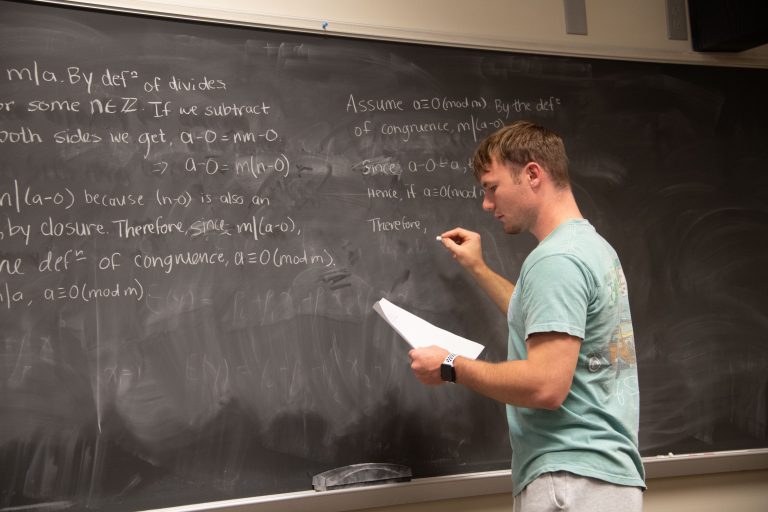 m|a. By defⁿ of divides
or some n∈ℤ. If we subtract
both sides we get, a-0=nm-0.
=> a-0=m(n-0)
m|(a-0) because (n-0) is also an
, by closure. Therefore, since m|(a-0),
he defⁿ of congruence, a≡0(mod m),
m|a, a≡0(mod m).
Assume a≡0(mod m). By the defⁿ
of congruence, m|(a-0)
Since, a-0=a,
Hence, if a≡0(mod m
Therefore,